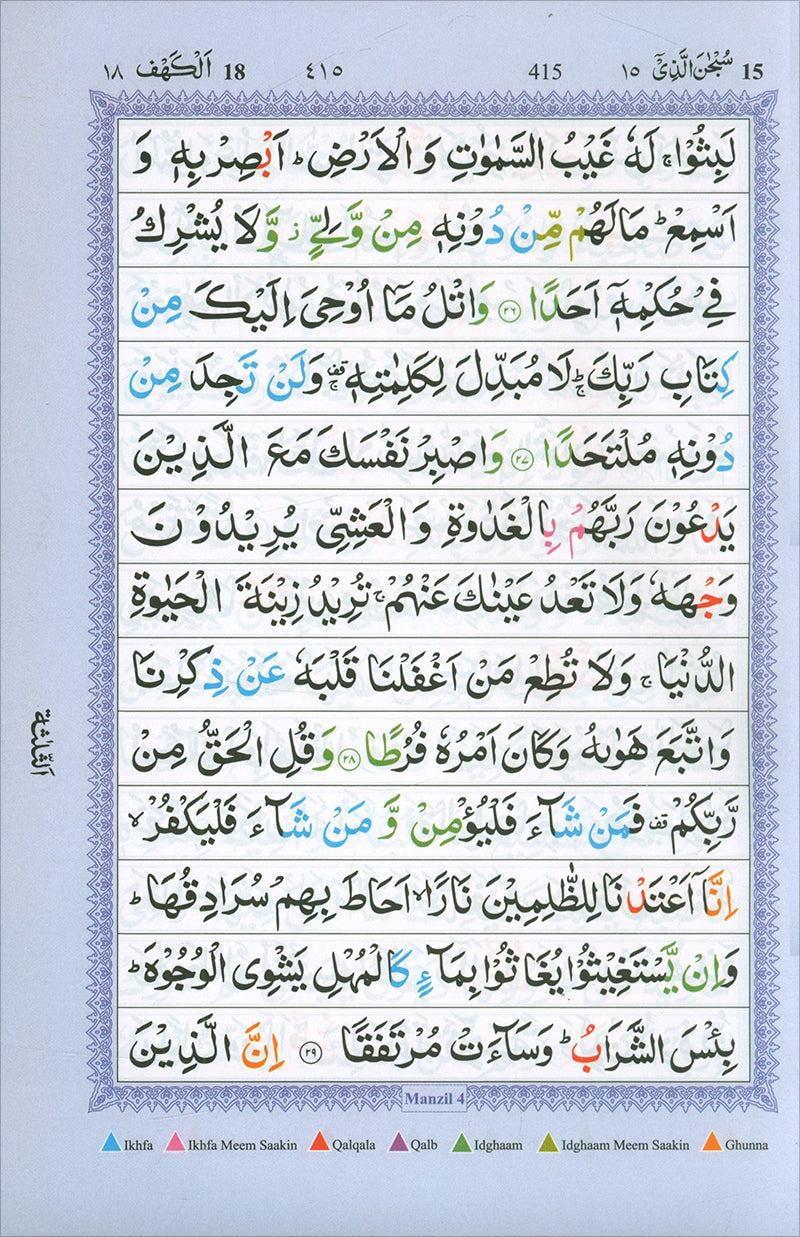 15 سُبْحٰنَ الَّذِیْۤ ١٥ 415 ٤١٥ 18 اَلْكَهْف ١٨
لَبِثُوْا ۚ لَهٗ غَیْبُ السَّمٰوٰتِ وَ الْاَرْضِ ؕ اَبْصِرْ بِهٖ وَ
اَسْمِعْ ؕ مَا لَهُمْ مِّنْ دُوْنِهٖ مِنْ وَّلِیٍّ ؗ وَّ لَا یُشْرِكُ
فِیْ حُكْمِهٖۤ اَحَدًا ﴿۲۶﴾ وَ اتْلُ مَاۤ اُوْحِیَ اِلَیْكَ مِنْ
كِتَابِ رَبِّكَ ؕۚ لَا مُبَدِّلَ لِكَلِمٰتِهٖ ۚ۫ وَ لَنْ تَجِدَ مِنْ
دُوْنِهٖ مُلْتَحَدًا ﴿۲۷﴾ وَ اصْبِرْ نَفْسَكَ مَعَ الَّذِیْنَ
یَدْعُوْنَ رَبَّهُمْ بِالْغَدٰوةِ وَ الْعَشِیِّ یُرِیْدُوْنَ
وَجْهَهٗ وَ لَا تَعْدُ عَیْنٰكَ عَنْهُمْ ۚ تُرِیْدُ زِیْنَةَ الْحَیٰوةِ
الدُّنْیَا ۚ وَ لَا تُطِعْ مَنْ اَغْفَلْنَا قَلْبَهٗ عَنْ ذِكْرِنَا
وَ اتَّبَعَ هَوٰىهُ وَ كَانَ اَمْرُهٗ فُرُطًا ﴿۲۸﴾ وَ قُلِ الْحَقُّ مِنْ
رَّبِّكُمْ ۫ فَمَنْ شَآءَ فَلْیُؤْمِنْ وَّ مَنْ شَآءَ فَلْیَكْفُرْ ۙ
اِنَّاۤ اَعْتَدْنَا لِلظّٰلِمِیْنَ نَارًا ۙ اَحَاطَ بِهِمْ سُرَادِقُهَا ؕ
وَ اِنْ یَّسْتَغِیْثُوْا یُغَاثُوْا بِمَآءٍ كَالْمُهْلِ یَشْوِی الْوُجُوْهَ ؕ
بِئْسَ الشَّرَابُ ؕ وَ سَآءَتْ مُرْتَفَقًا ﴿۲۹﴾ اِنَّ الَّذِیْنَ
اَلثَّلٰثَة
Manzil 4
Ikhfa Ikhfa Meem Saakin Qalqala Qalb Idghaam Idghaam Meem Saakin Ghunna